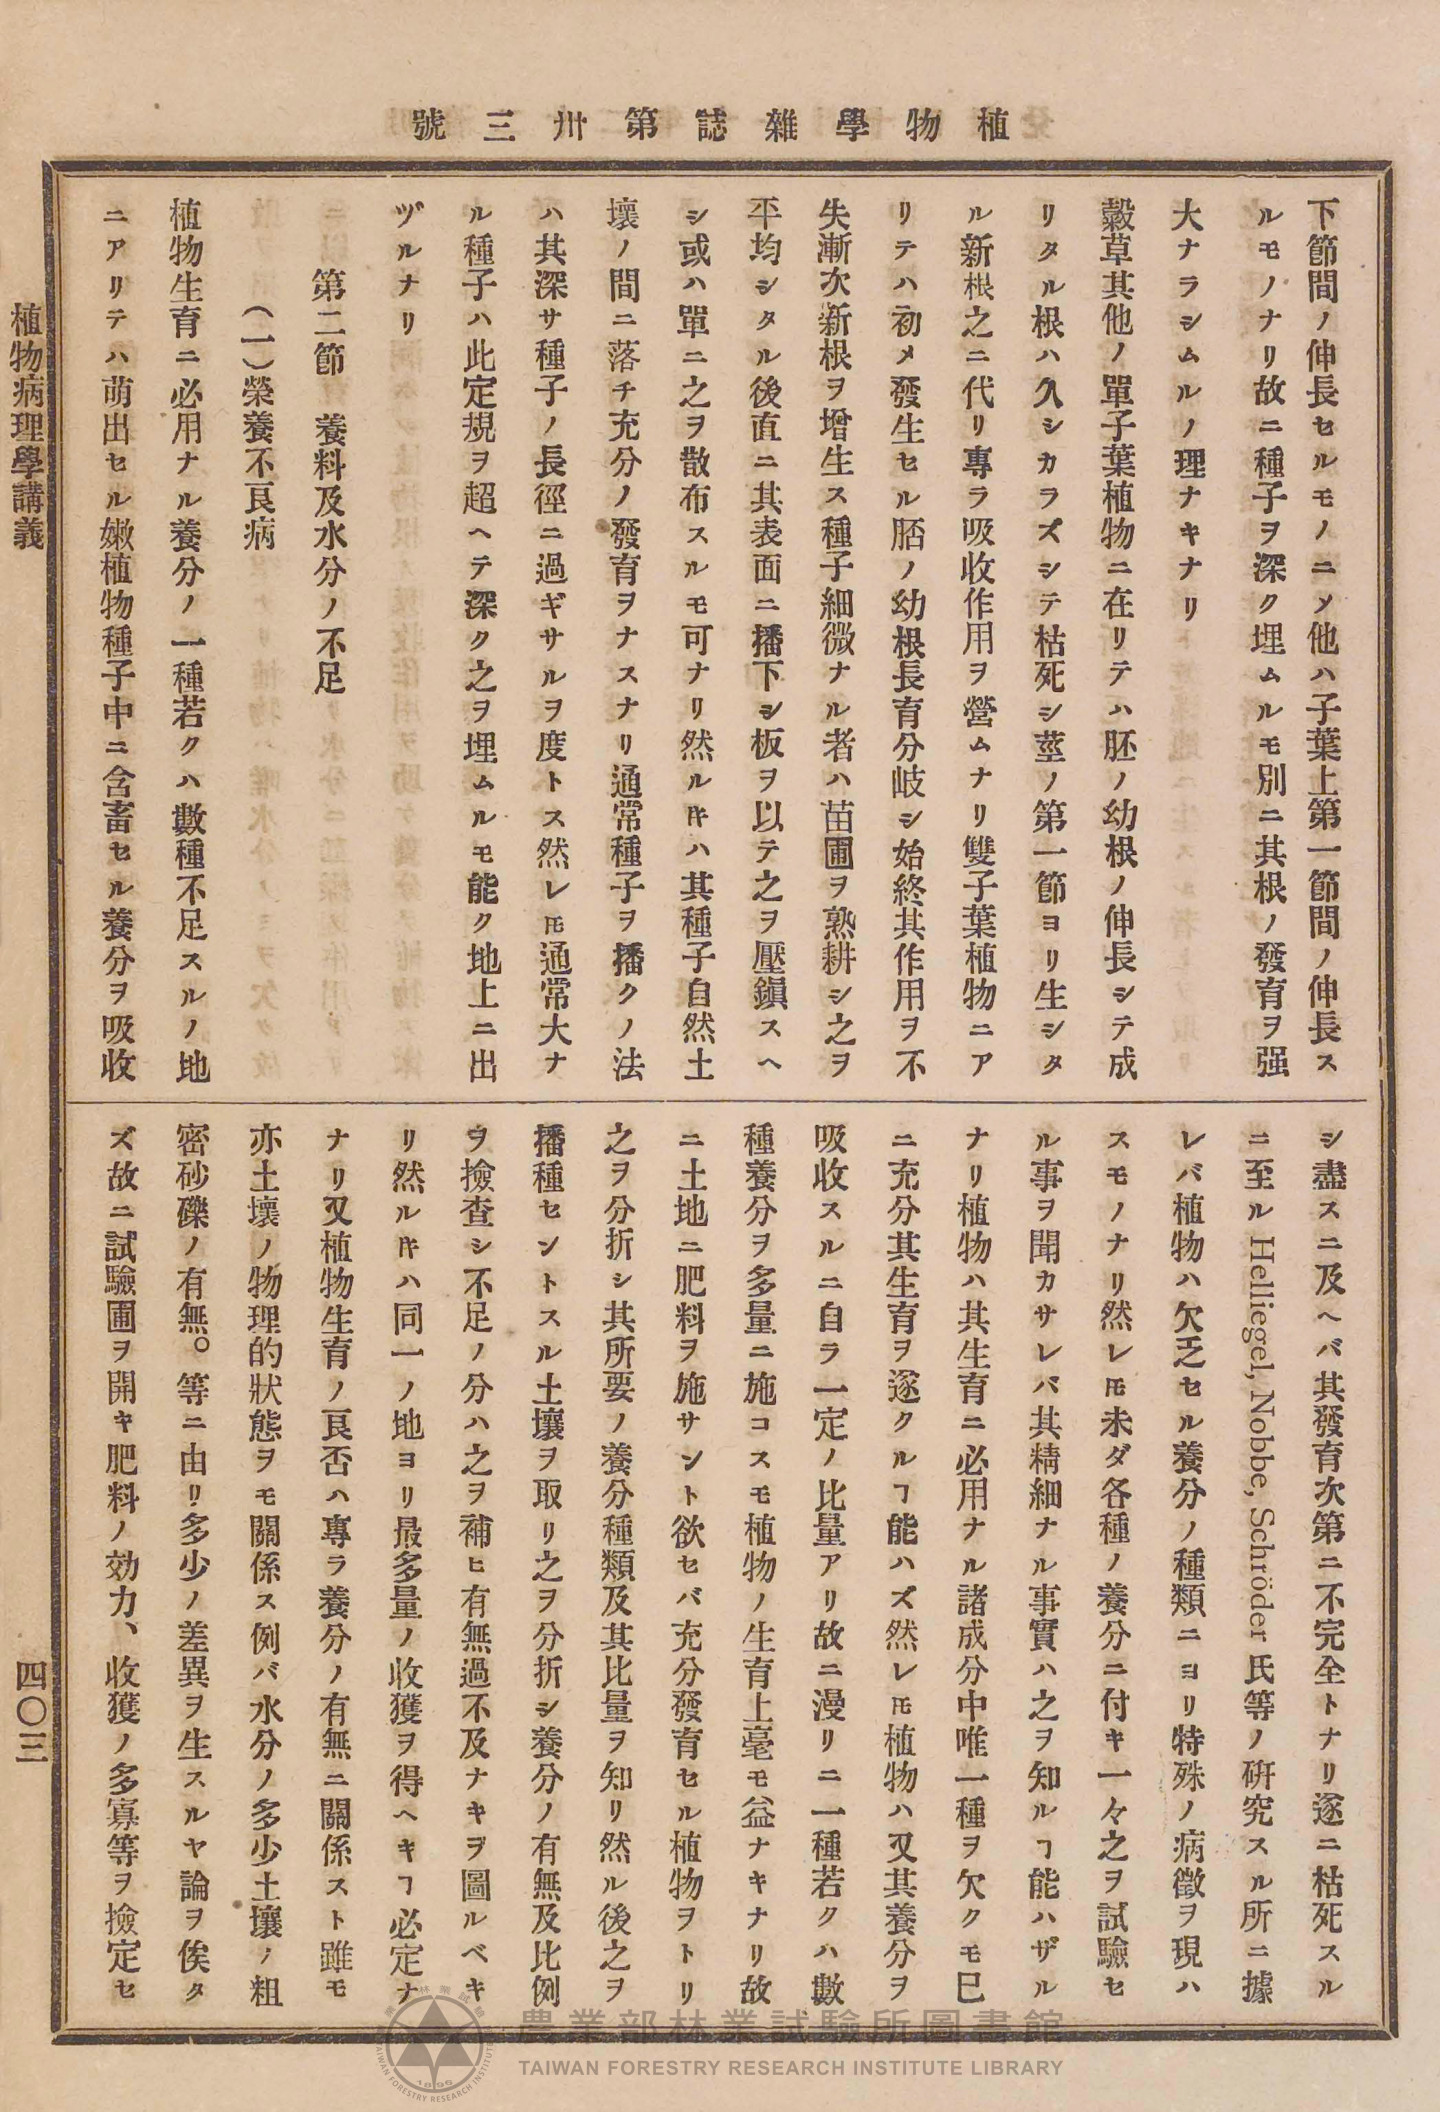 植物學雜誌第卅三號
下節間ノ伸長セルモノニメ他ハ子葉上第一節間ノ伸長ス
ルモノナリ故ニ種子ヲ深ク埋ムルモ別ニ其根ノ發育ヲ强
大ナラシムルノ理ナキナリ
穀草其他ノ單子葉植物ニ在リテハ胚ノ幼根ノ伸長シテ成
リタル根ハ久シカラズシテ枯死シ莖ノ第一節ヨリ生シタ
ル新根之ニ代リ專ラ吸收作用ヲ營ムナリ雙子葉植物ニア
リテハ初メ發生セル胚ノ幼根長育分岐シ始終其作用ヲ不
失漸次新根ヲ增生ス種子細微ナル者ハ苗圃ヲ熟耕シ之ヲ
平均シタル後直ニ其表面ニ播下シ板ヲ以テ之ヲ壓鎭スヘ
シ或ハ單ニ之ヲ散布スルモ可ナリ然ルキハ其種子自然土
壤ノ間ニ落チ充分ノ發育ヲナスナリ通常種子ヲ播クノ法
ハ其深サ種子ノ長徑ニ過ギサルヲ度トス然レ𪜈通常大ナ
ル種子ハ此定規ヲ超ヘテ深ク之ヲ埋ムルモ能ク地上ニ出
ヅルナリ
第二節 養料及水分ノ不足
(一)榮養不良病
植物生育ニ必用ナル養分ノ一種若クハ數種不足スルノ地
ニアリテハ萌出セル嫩植物種子中ニ含畜セル養分ヲ吸收
シ盡スニ及ヘバ其發育次第ニ不完全トナリ遂ニ枯死スル
ニ至ル Helliegel, Nobbe, Schröder 氏等ノ硏究スル所ニ據
レバ植物ハ欠乏セル養分ノ種類ニヨリ特殊ノ病徵ヲ現ハ
スモノナリ然レ𪜈未ダ各種ノ養分ニ付キ一々之ヲ試驗セ
ル事ヲ聞カサレバ其精細ナル事實ハ之ヲ知ルヿ能ハザル
ナリ植物ハ其生育ニ必用ナル諸成分中唯一種ヲ欠クモ巳
ニ充分其生育ヲ逐クルヿ能ハズ然レ𪜈植物ハ又其養分ヲ
吸收スルニ自ラ一定ノ比量アリ故ニ漫リニ一種若クハ數
種養分ヲ多量ニ施コスモ植物ノ生育上毫モ益ナキナリ故
ニ土地ニ肥料ヲ施サント欲セバ充分發育セル植物ヲトリ
之ヲ分折シ其所要ノ養分種類及其比量ヲ知リ然ル後之ヲ
播種セントスル土壤ヲ取リ之ヲ分折シ養分ノ有無及比例
ヲ撿查シ不足ノ分ハ之ヲ補ヒ有無過不及ナキヲ圖ルベキ
リ然ルキハ同一ノ地ヨリ最多量ノ收獲ヲ得ヘキヿ必定ナ
ナリ又植物生育ノ良否ハ專ラ養分ノ有無ニ關係スト雖モ
亦土壤ノ物理的狀態ヲモ關係ス例バ水分ノ多少土壤ノ粗
密砂礫ノ有無。等ニ由リ多少ノ差異ヲ生スルヤ論ヲ俟タ
ズ故ニ試驗圃ヲ開キ肥料ノ効力、收獲ノ多寡等ヲ撿定セ
植物病理學講義
四〇三
農業部林業試驗所圖書館
TAIWAN FORESTRY RESEARCH INSTITUTE LIBRARY
農業部林業試驗所
TAIWAN FORESTRY RESEARCH INSTITUTE
1896